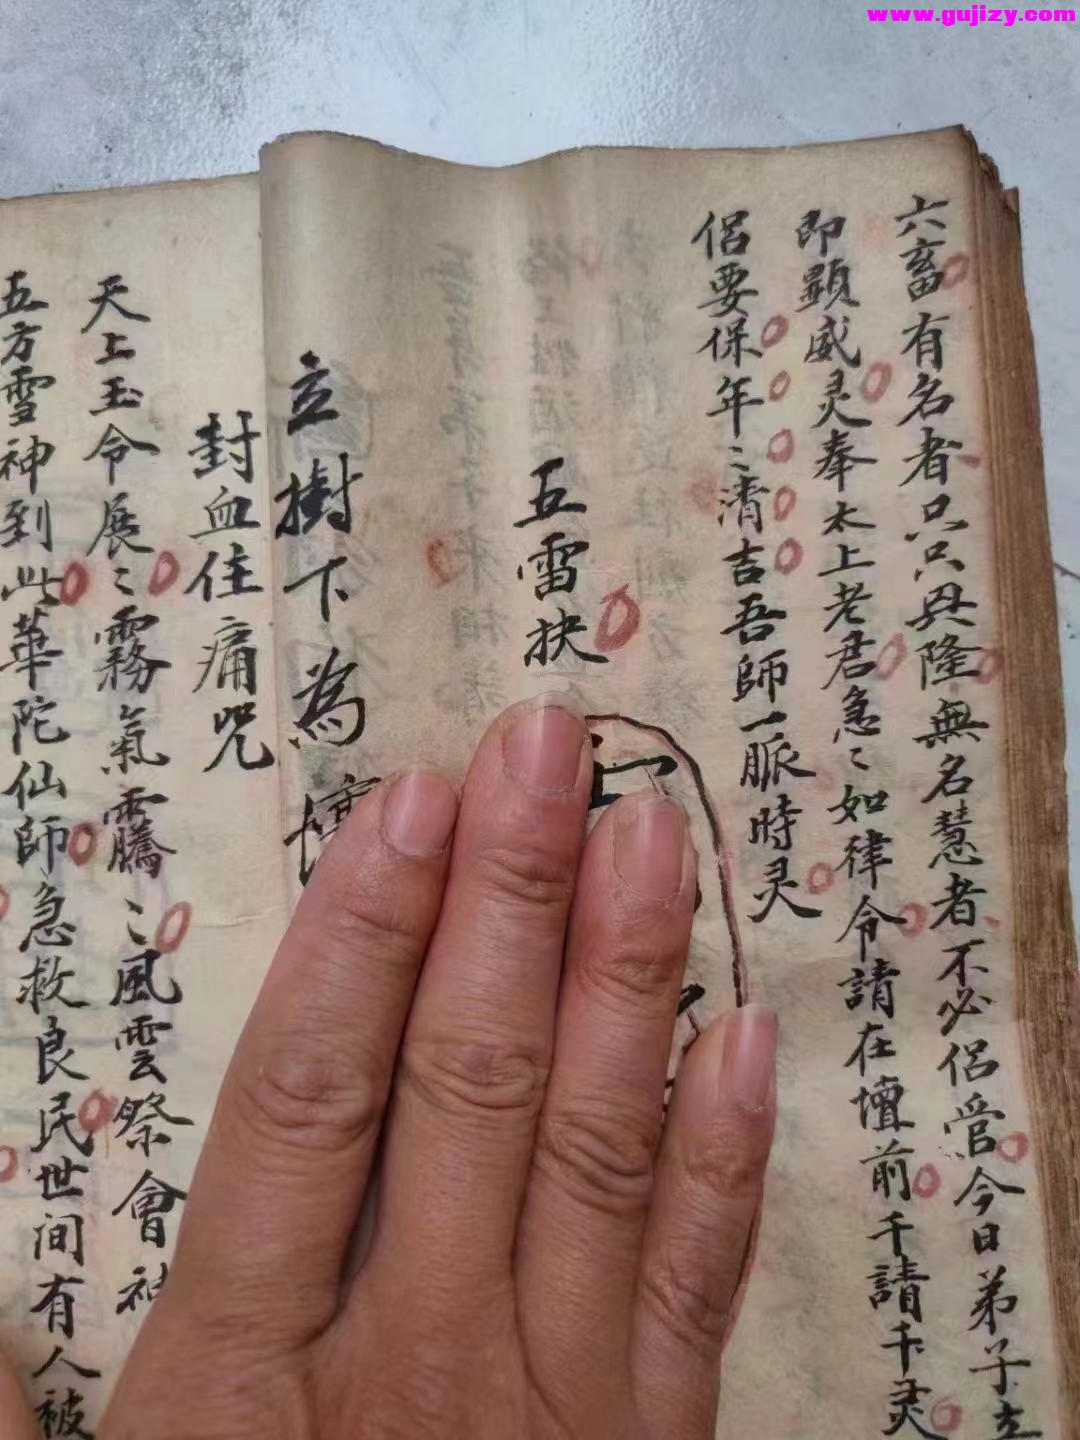 www.gujizy.com
六畜有名者只只興隆無名慧者不必侣管今日弟子立
即顕威灵奉太上老君急〻如律令請在壇前千請千灵
侣要保年〻清吉吾師一脈時灵
五雷抉
立樹下為
封血住痛咒
天上玉令展〻霧氣霧騰〻風雲祭會神
五方雪神到此華陀仙師急救良民世间有人被